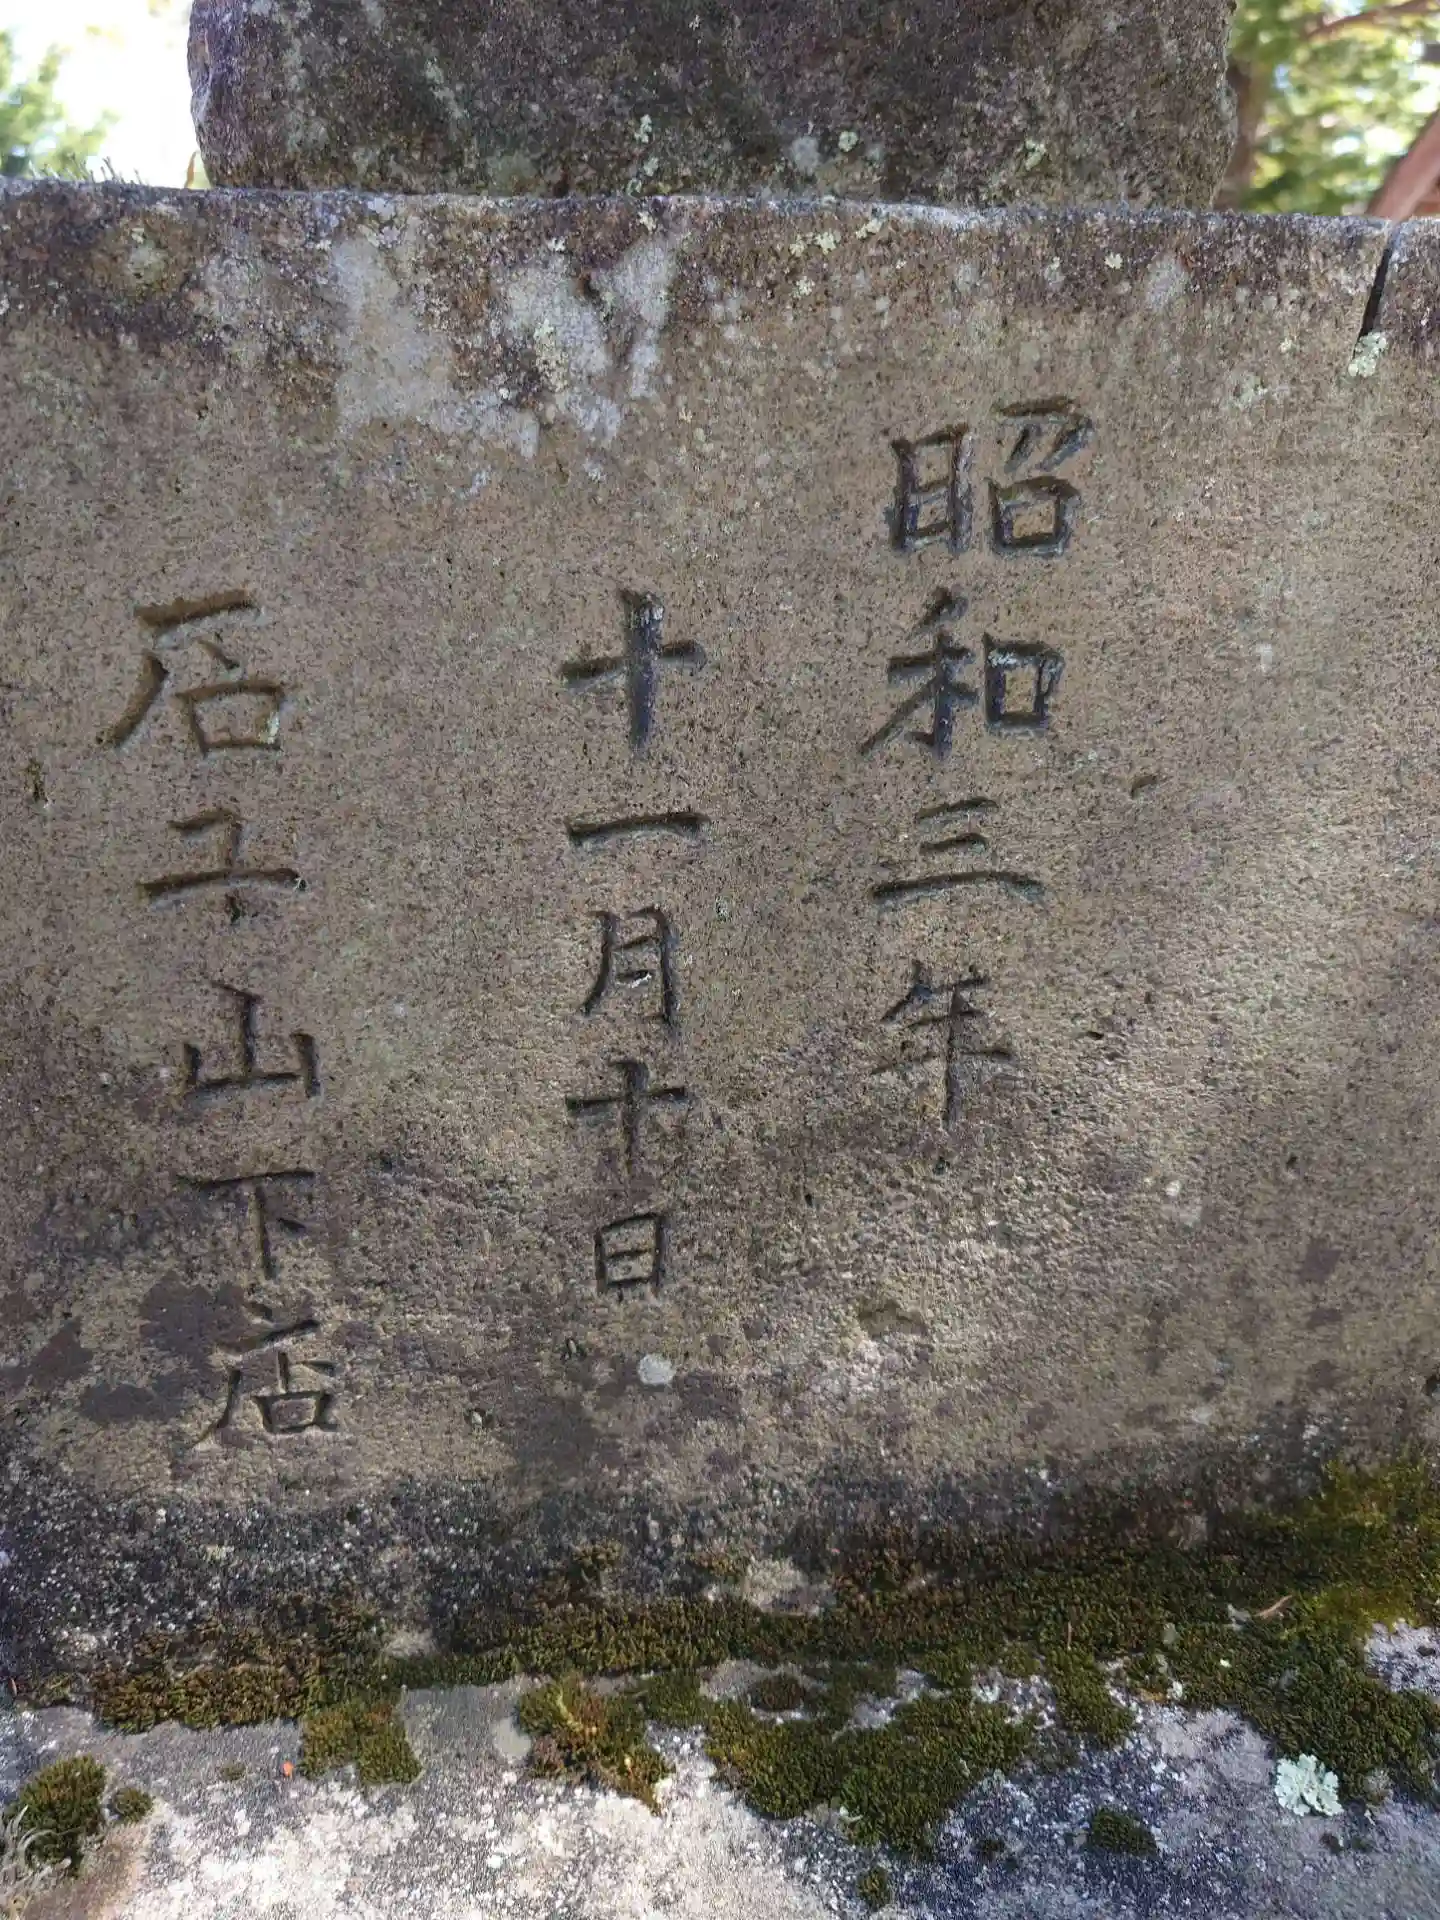 昭和三年
十一月十日
石工山下店